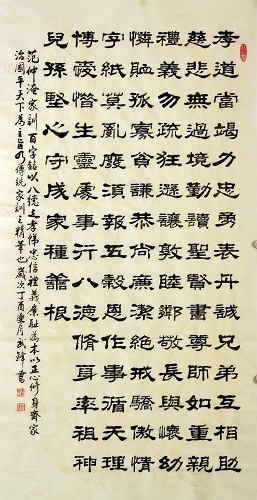 孝道當竭力忠勇表丹誠兄弟互相助
慈悲無過境勤讀聖賢書尊師如重親
禮義勿疏狂遜讓敦睦鄰敬長與懷幼
憐卹孤寡貧謙恭尚廉潔絕戒驕傲情
字紙莫亂廢須報五穀恩作事循天理
博愛惜生靈處事行八德脩身率祖神
兒孫堅心守成家種善根
范仲淹家訓百字銘以八德之孝悌忠信禮義廉恥為本以正心修身齊家
治國平天下為主旨乃傳統家訓之精華也歲次丁酉夏月書